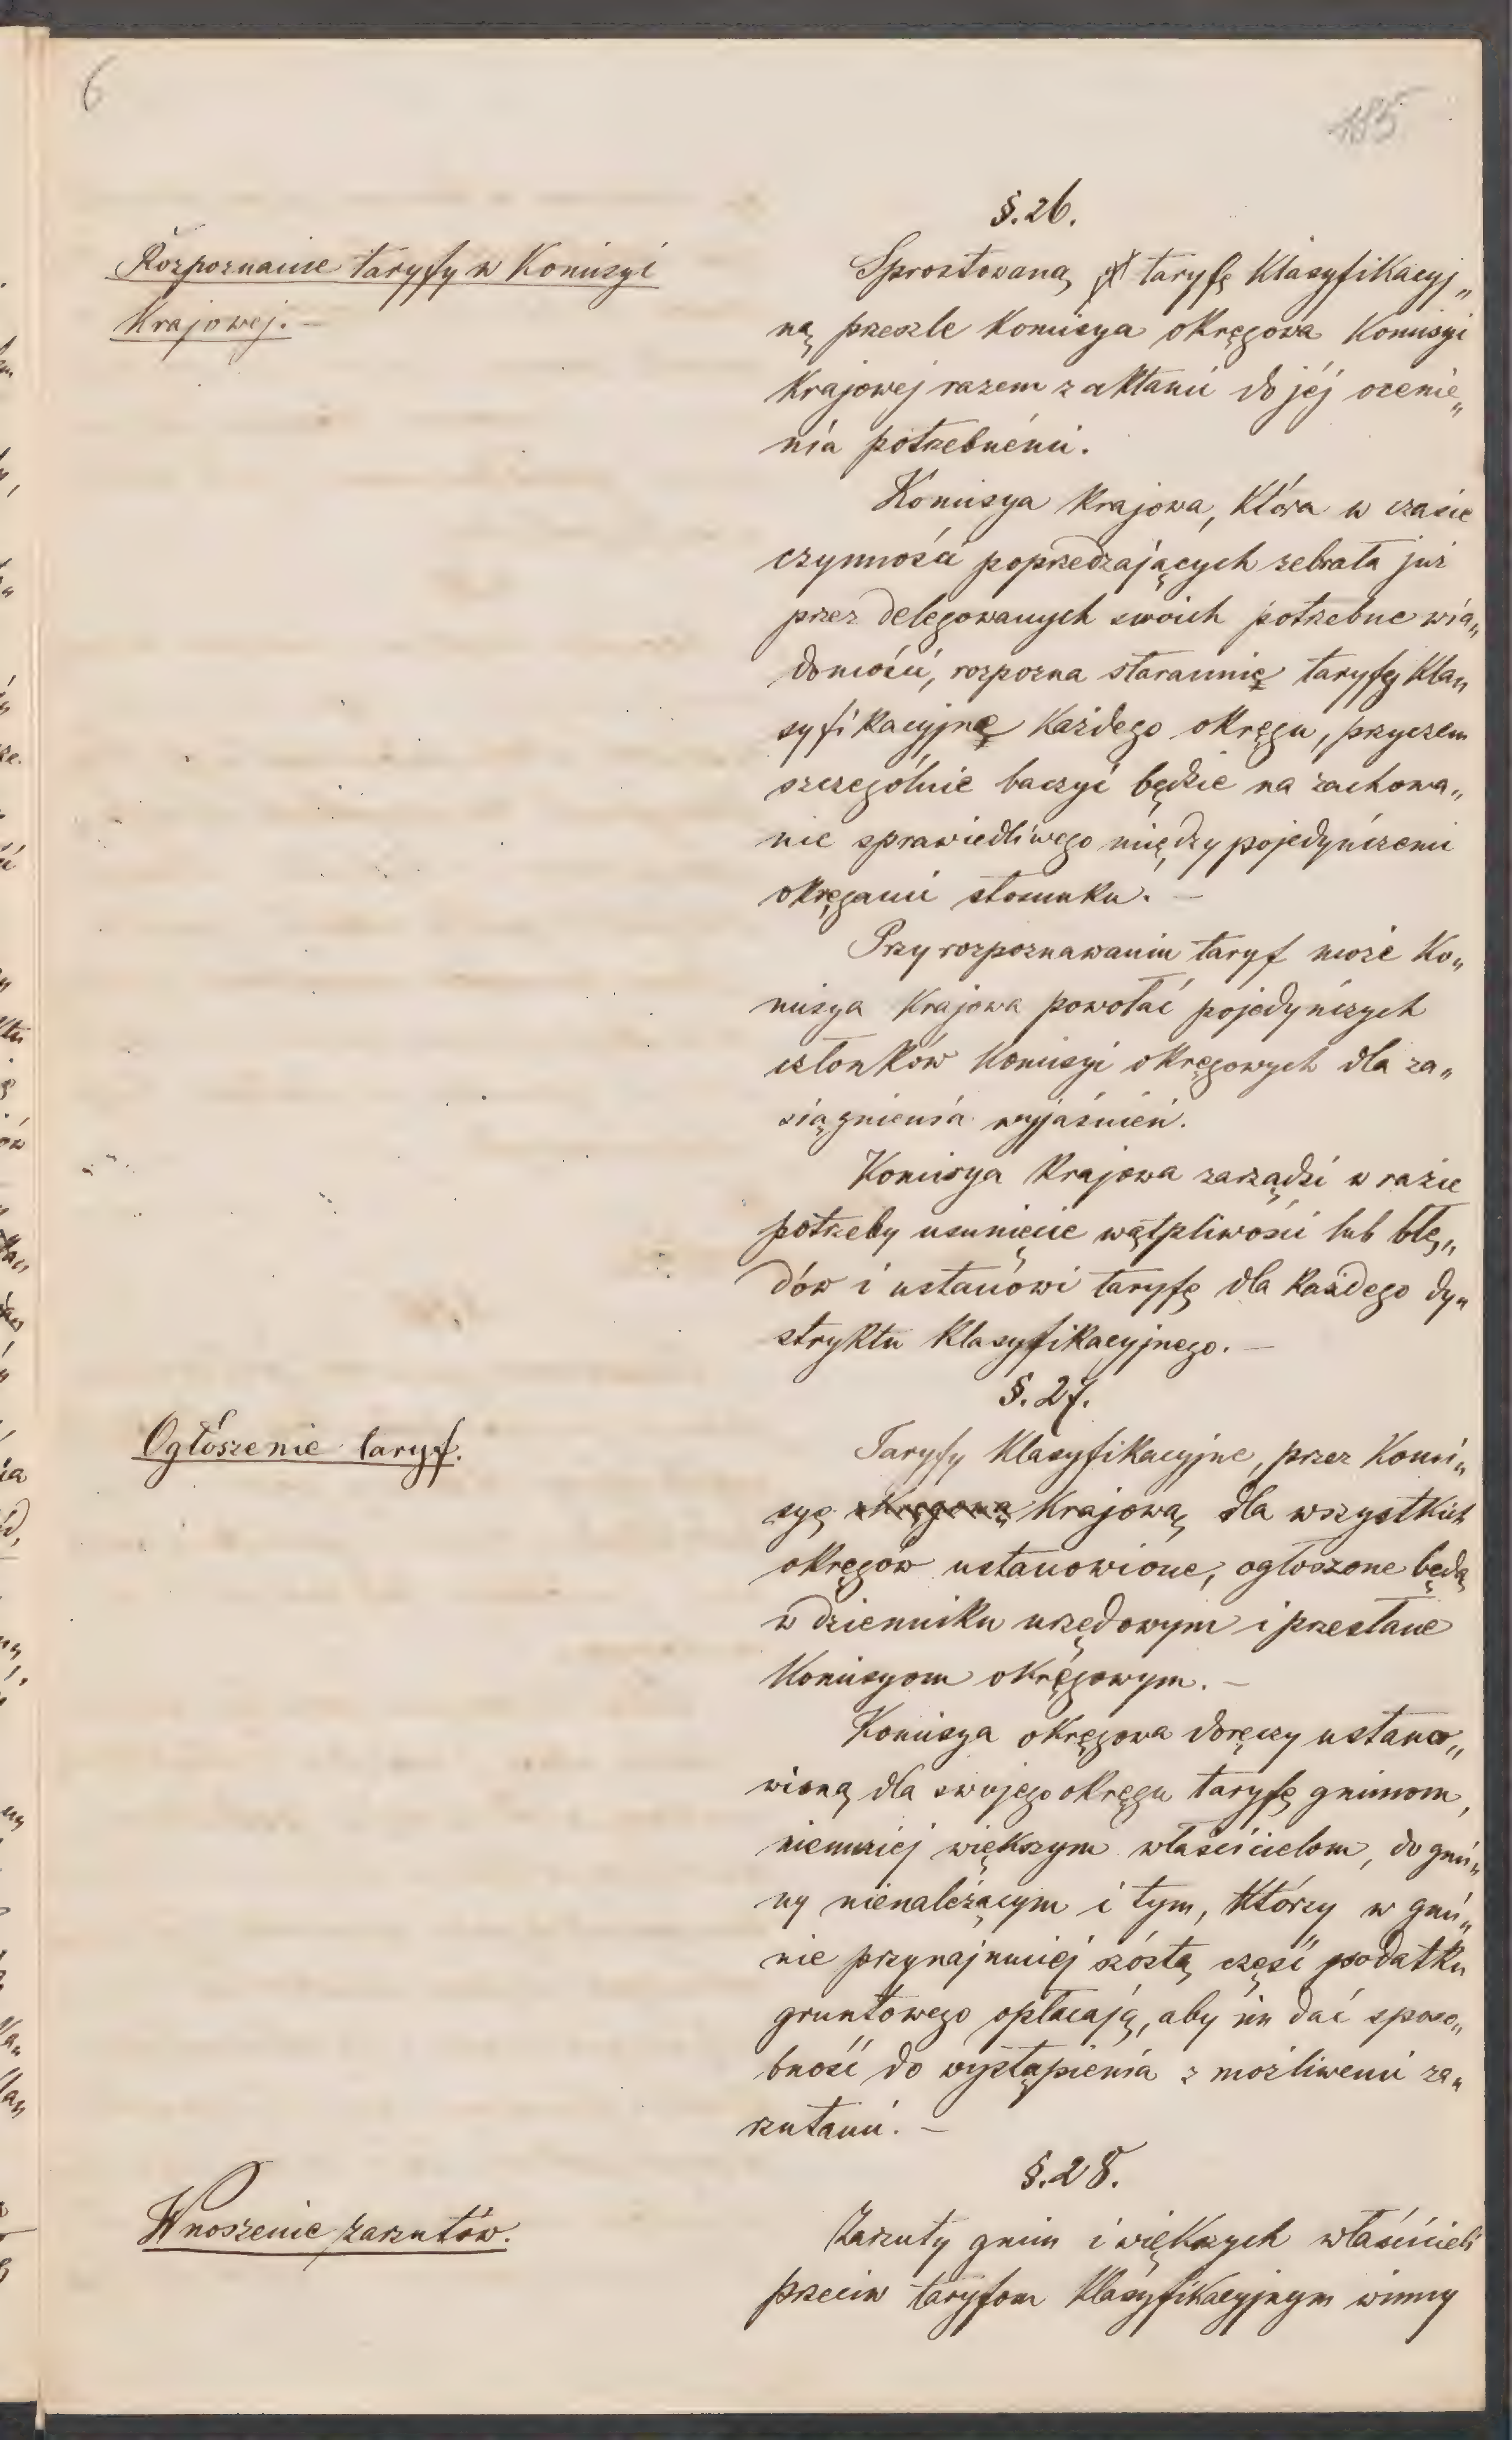 6
185
§. 26.
Rozpoznanie taryfy w Komisyi
Krajowej. —
Sprostowaną taryfę Klasyfikacyj„
ną prześle Komisya okręgowa Komisyi
Krajowej razem z aktami do jéj ocenie„
nia potrzebnémi.
Komisya Krajowa, która w czasie
czynności poprzedzających zebrała już
przez delegowanych swoich potrzebne wia„
domości, rozpozna starannie taryfę Kla„
syfikacyjną Każdego okręgu, przyczem
szczególnie baczyć będzie na zachowa„
nie sprawiedliwego między pojedyńczemi
okręgami stosunku. —
Przy rozpoznawaniu taryf może Ko„
misya Krajowa powołać pojedyńczych
członków Komisyi okręgowych dla za„
siągnienia wyjaśnień.
Komisya Krajowa zarządzi w razie
potrzeby usunięcie wątpliwości lub błę„
dów i ustanowi taryfę dla Każdego dy„
stryktu Klasyfikacyjnego. —
§. 27.
Ogłoszenie taryf.
Taryfy Klasyfikacyjne, przez Komi„
syę okręgową Krajową dla wszystkich
okręgów ustanowione, ogłoszone będą
w dzienniku urzędowym i przesłane
Komisyom okręgowym. —
Komisya okręgowa doręczy ustano„
wioną dla swojego okręgu taryfę gminom,
niemniej większym właścicielom, do gmi„
ny nienależącym i tym, Którzy w gmi„
nie przynajmniej szóstą część podatku
gruntowego opłacają, aby im dać sposo„
bność do wystąpienia z możliwemi za„
rzutami. —
§. 28.
Wnoszenie zarzutów.
Zarzuty gmin i większych właścicieli
przeciw taryfom Klasyfikacyjnym winny